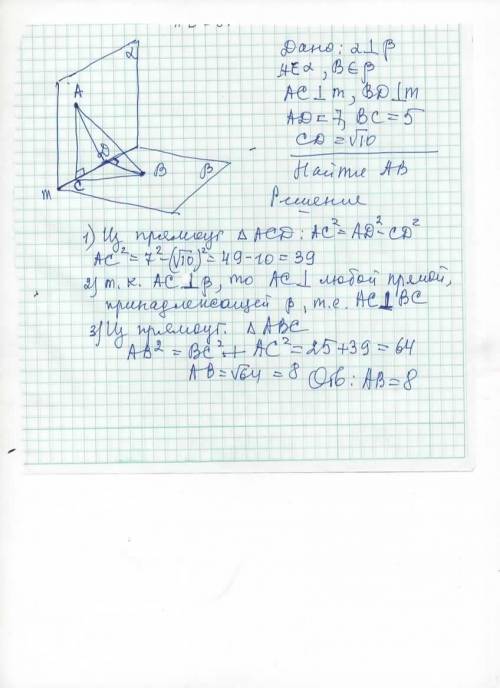 α
A
D
B
β
C
m
Дано: α⊥β
A∈α, B∈β
AC⊥m, BD⊥m
AD=7, BC=5
CD=√10
Найти AB
Решение
1) Из прямоуг △ACD: AC²=AD²-CD²
AC²=7²-(√10)²=49-10=39
2) т.к. AC⊥β, то AC⊥ любой прямой,
принадлежащей β, т.е. AC⊥BC
3) Из прямоуг. △ABC
AB²=BC²+AC²=25+39=64
AB=√64=8 Отв: AB=8